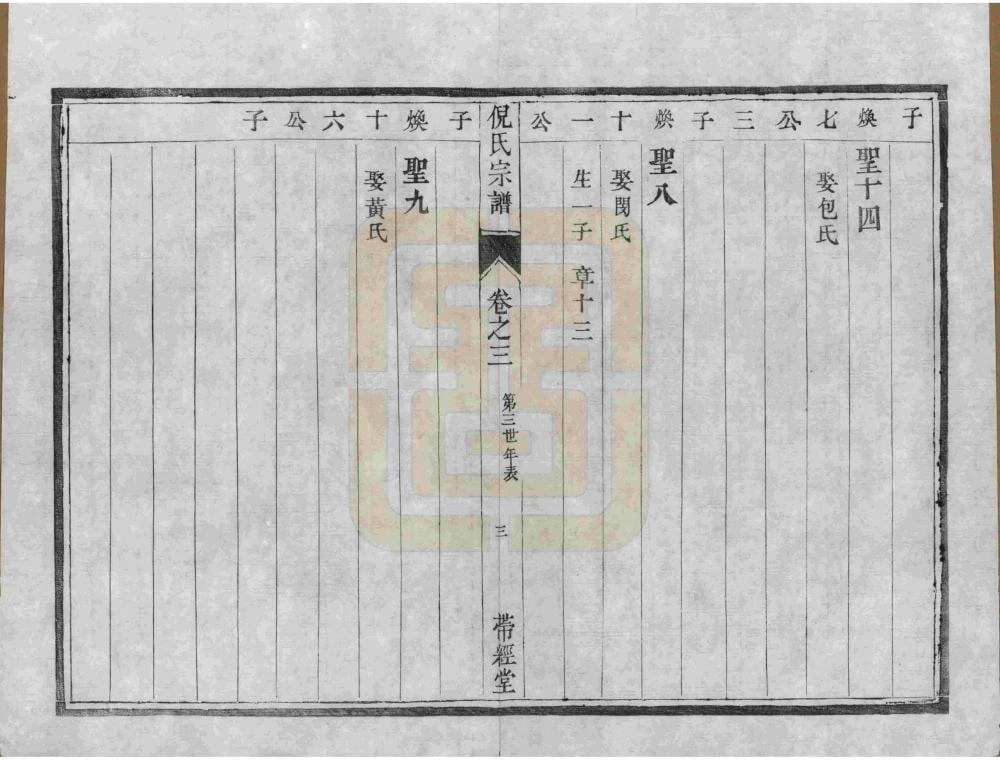 子煥七公三子煥十一公
聖十四
娶包氏
聖八
娶閔氏
生一子 章十三
倪氏宗譜 卷之三 第三世年表 三 帶經堂
子煥十六公子
聖九
娶黃氏